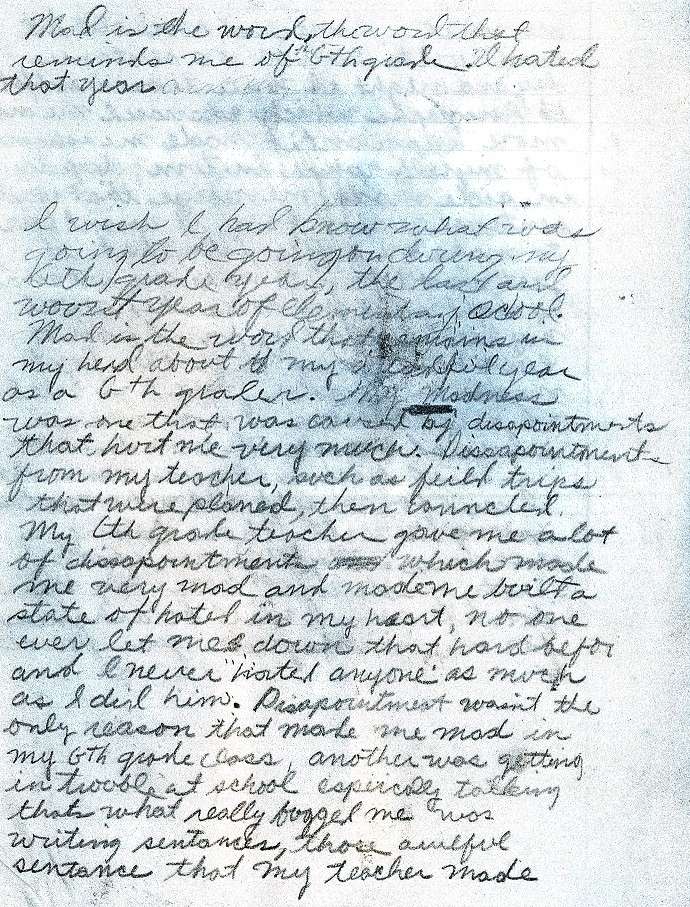 Mad is the word, the word that
reminds me of 6th grade. I hated
that year
I wish I had know what was
going to be going on during my
6th grade year, the last and
woorst year of elementary scool.
Mad is the word that remains in
my head about my dreadful year
as a 6th grader. My madness
was one that was caused by disapointments
that hurt me very much. Dissapointments
from my teacher, such as feild trips
that were planed, then cancled.
My 6th grade teacher gave me a lot
of dissapointments which made
me very mad and made me built a
state of hatel in my heart, no one
ever let me down that hard befor
and I never hated anyone as much
as I did him. Disapointment wasn't the
only reason that made me mad in
my 6th grade class, another was getting
in trouble at school especially talking
thats what really bugged me was
writing sentances, those awlful
sentance that my teacher made